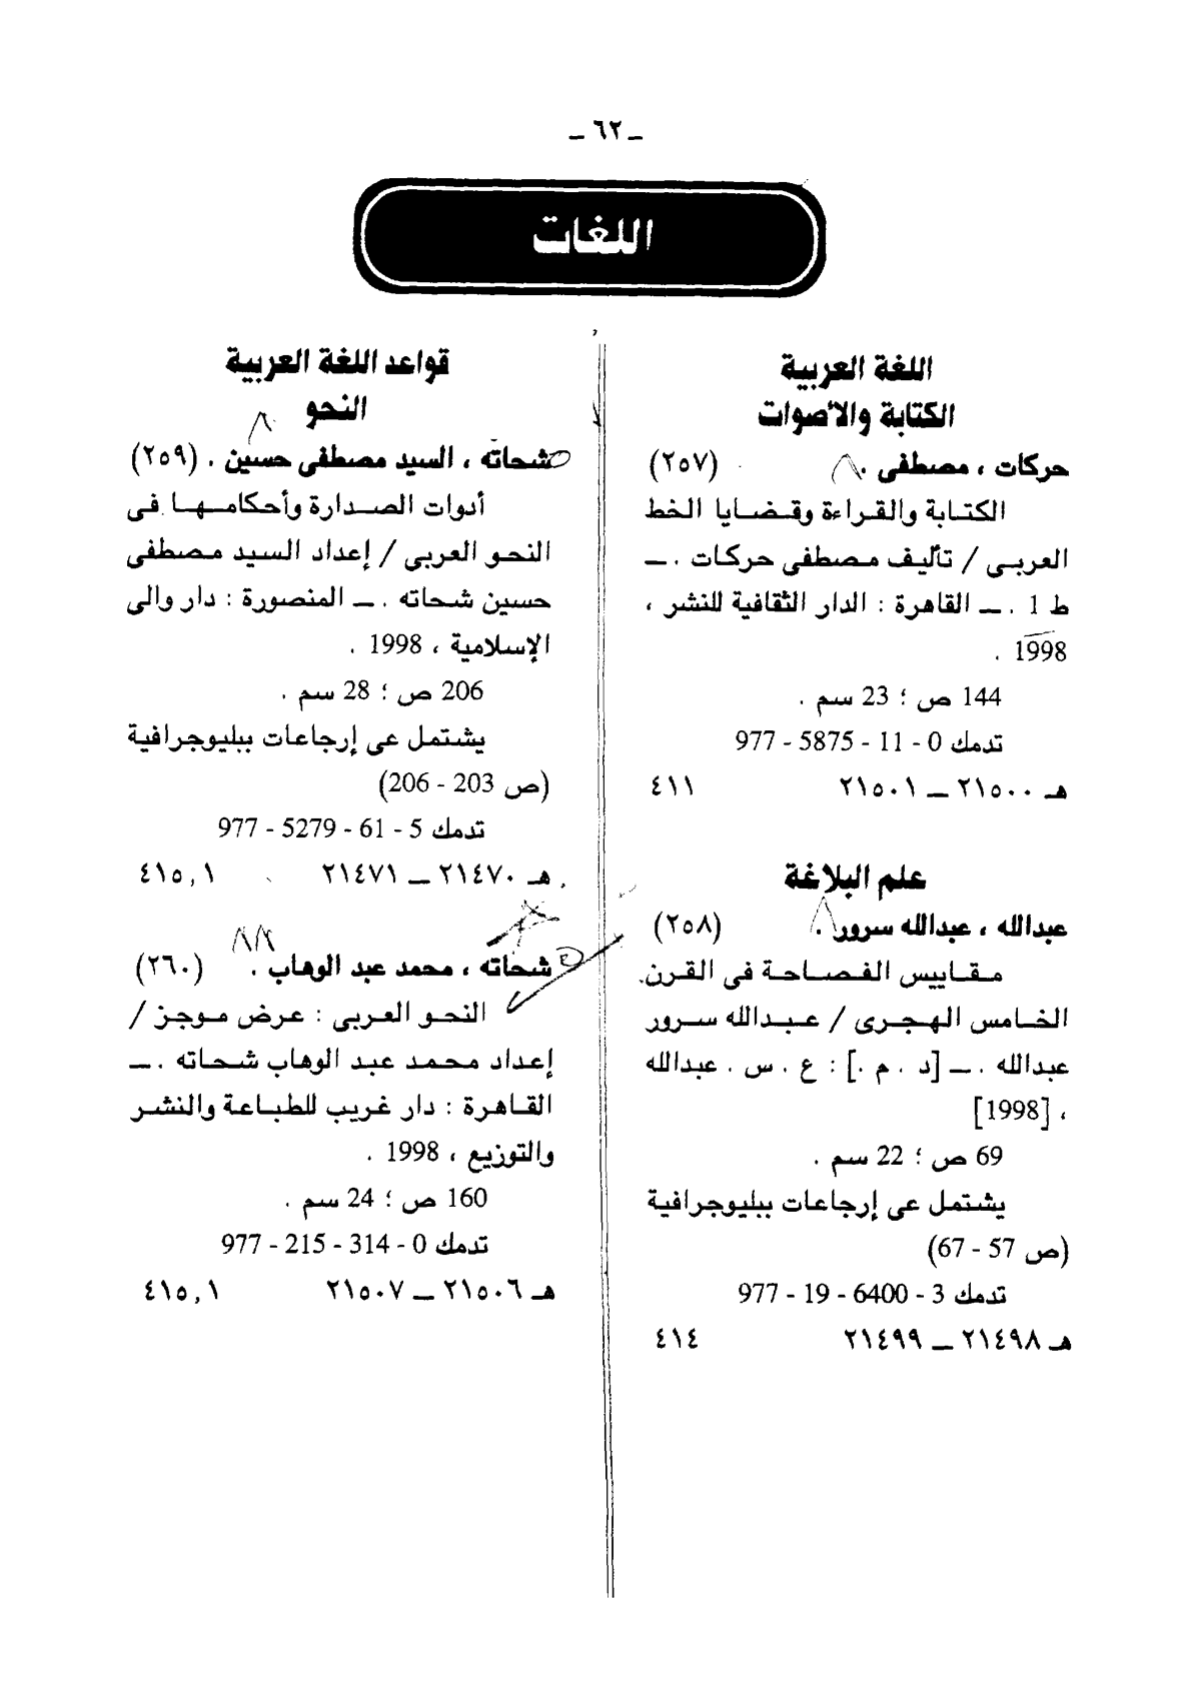 ـ ٦٢ ـ
اللغات
اللغة العربية
الكتابة والأصوات
حركات ، مصطفى . (٢٥٧)
الكتابة والقراءة وقضايا الخط
العربى / تأليف مصطفى حركات . ـ
ط 1 . ـ القاهرة : الدار الثقافية للنشر ،
1998 .
144 ص ؛ 23 سم .
تدمك 0 - 11 - 5875 - 977
هـ ٢١٥٠٠ ـ ٢١٥٠١ ٤١١
علم البلاغة
عبدالله ، عبدالله سرور . (٢٥٨)
مقاييس الفصاحة فى القرن
الخامس الهجرى / عبدالله سرور
عبدالله . ـ [د . م .] : ع . س . عبدالله
، [1998]
69 ص ؛ 22 سم .
يشتمل عى إرجاعات ببليوجرافية
(ص 57 - 67)
تدمك 3 - 6400 - 19 - 977
هـ ٢١٤٩٨ ـ ٢١٤٩٩ ٤١٤
قواعد اللغة العربية
النحو
شحاته ، السيد مصطفى حسين . (٢٥٩)
أدوات الصدارة وأحكامها فى
النحو العربى / إعداد السيد مصطفى
حسين شحاته . ـ المنصورة : دار والى
الإسلامية ، 1998 .
206 ص ؛ 28 سم .
يشتمل عى إرجاعات ببليوجرافية
(ص 203 - 206)
تدمك 5 - 61 - 5279 - 977
هـ ٢١٤٧٠ ـ ٢١٤٧١ ٤١٥,١
شحاته ، محمد عبد الوهاب . (٢٦٠)
النحو العربى : عرض موجز /
إعداد محمد عبد الوهاب شحاته . ـ
القاهرة : دار غريب للطباعة والنشر
والتوزيع ، 1998 .
160 ص ؛ 24 سم .
تدمك 0 - 314 - 215 - 977
هـ ٢١٥٠٦ ـ ٢١٥٠٧ ٤١٥,١